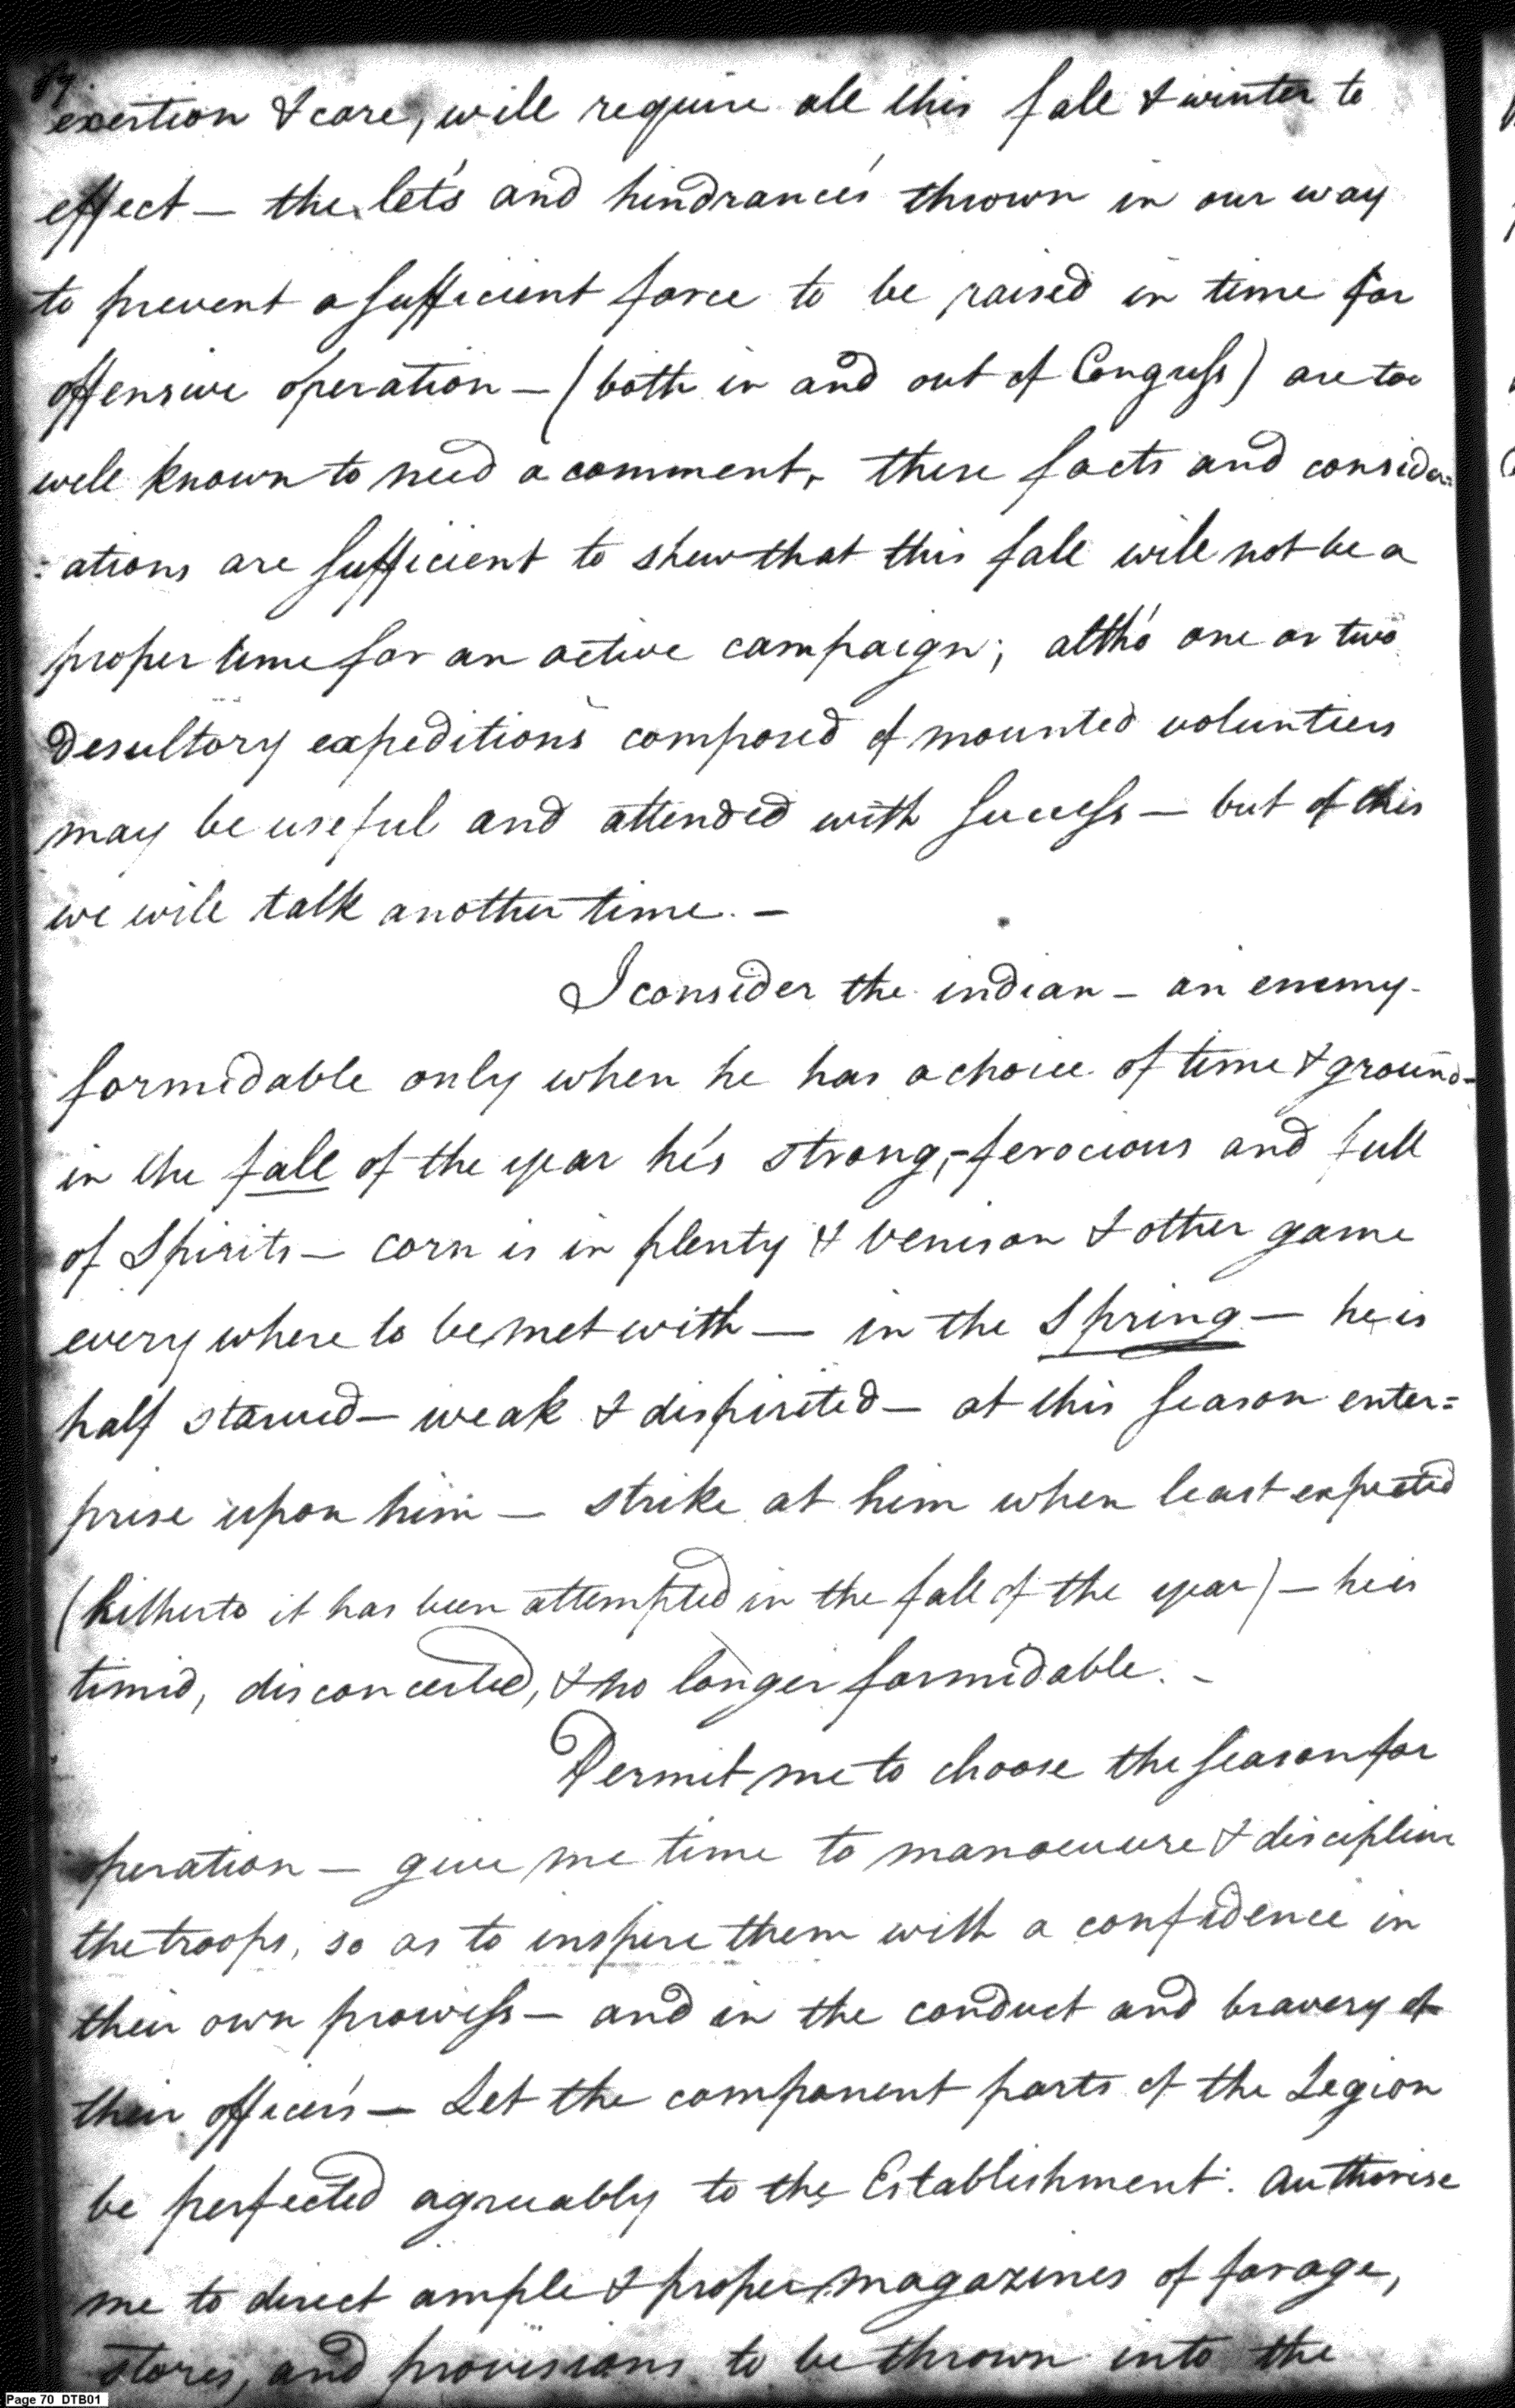 exertion & care, will require all this fall & winter to
effect — the let's and hindrance's thrown in our way
to prevent a sufficient force to be raised in time for
offensive operation — (both in and out of Congress) are too
well known to need a comment, these facts and consider=
:ations are sufficient to shew that this fall will not be a
proper time for an active campaign; altho' one or two
desultory expeditions composed of mounted volunteers
may be useful and attended with success — but of this
we will talk another time. —
I consider the indian – an enemy –
formidable only when he has a choice of time & ground –
in the fall of the year he's strong, – ferocious and full
of Spirits — corn is in plenty & venison & other game
every where to be met with — in the Spring — he is
half starved — weak & dispirited — at this season enter=
prise upon him — strike at him when least expected
(hitherto it has been attempted in the fall of the year) — he is
timid, disconcerted, & no longer formidable. –
Permit me to choose the season for
operation — give me time to manoeuvre & discipline
the troops, so as to inspire them with a confidence in
their own prowess — and in the conduct and bravery of
their officer's — Let the component parts of the Legion
be perfected agreeably to the Establishment: authorise
me to direct ample & proper magazines of forage,
stores, and provisions to be thrown into the
Page 70 DTB01